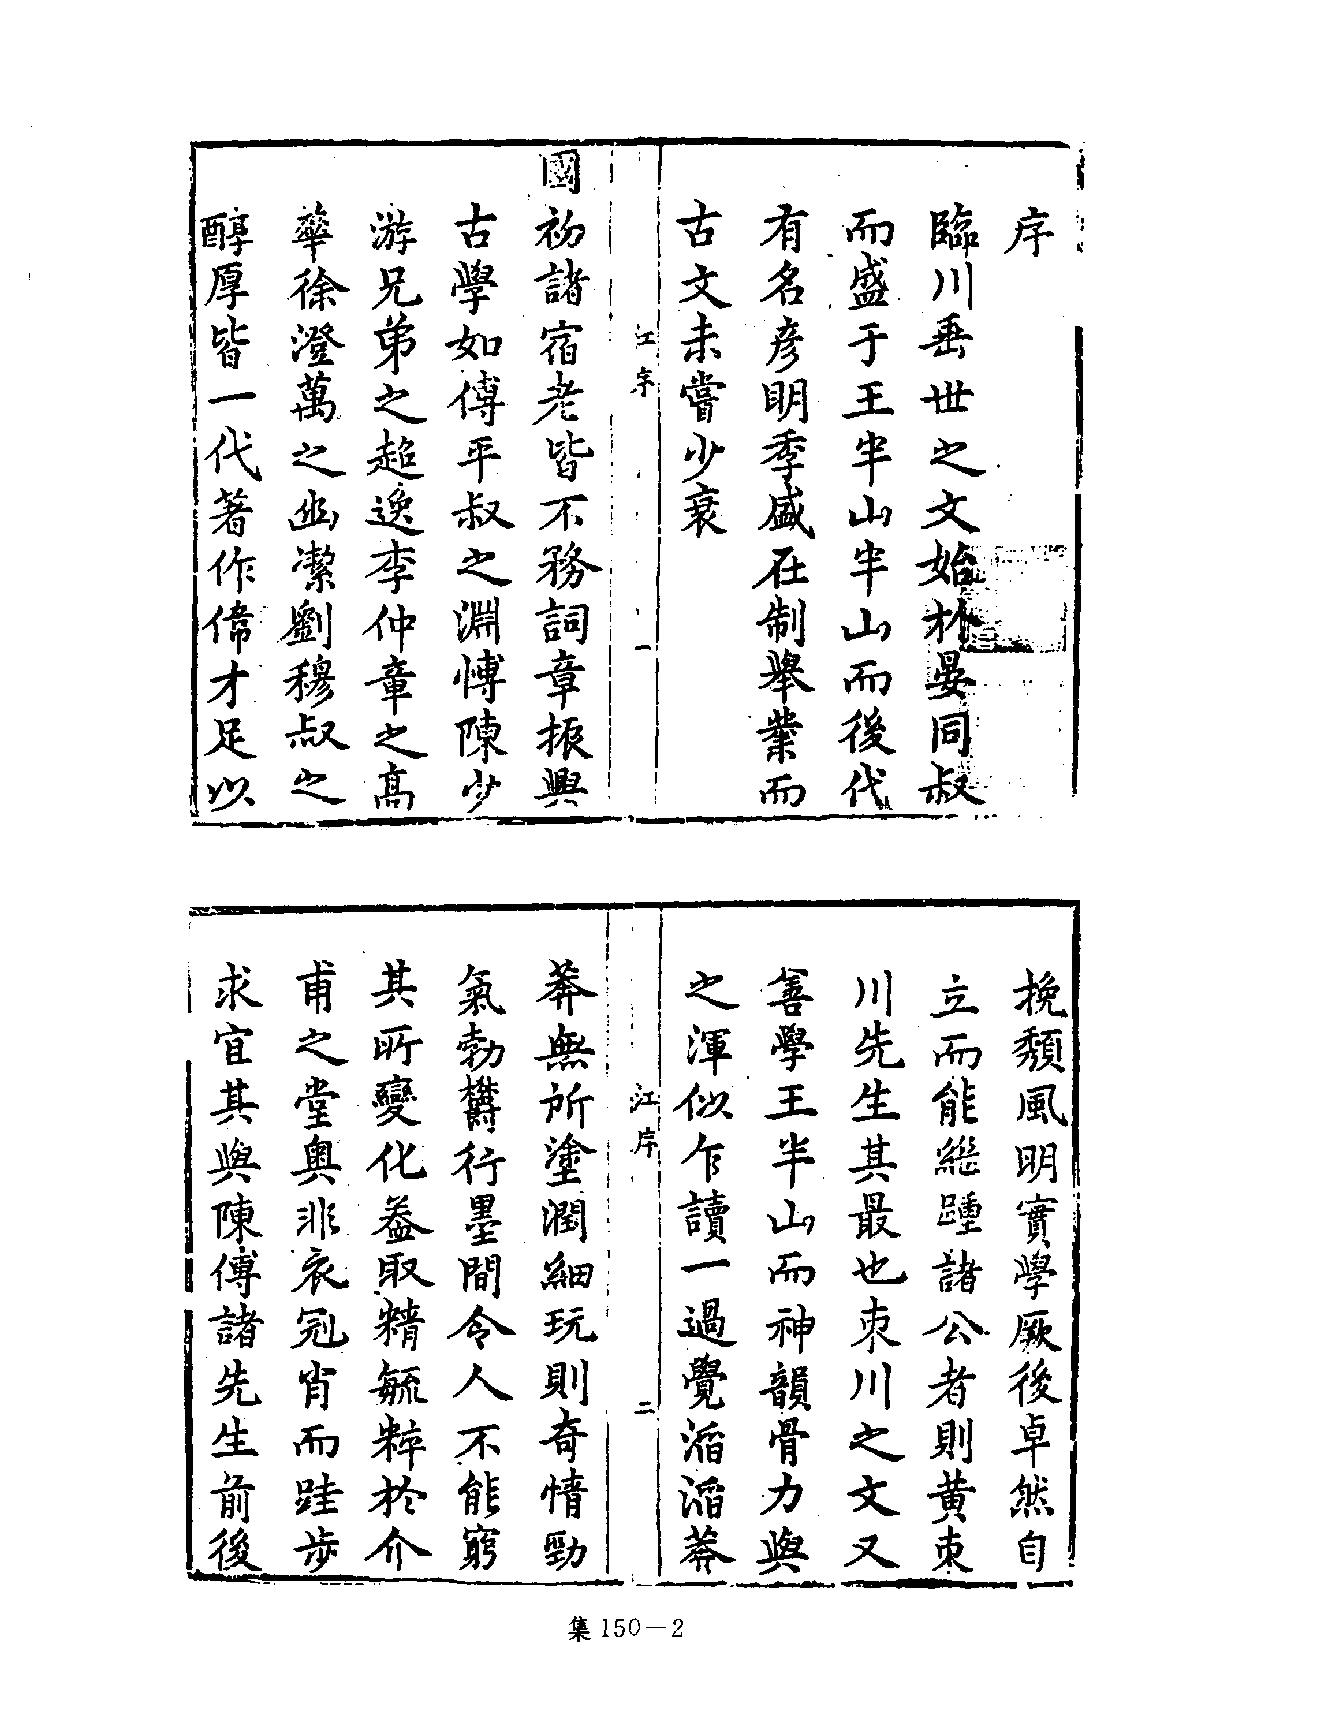 序
臨川垂世之文始於晏同叔
而盛于王半山半山而後代
有名彦明季盛在制舉業而
古文未嘗少衰
江序
一
國初諸宿老皆不務詞章振興
古學如傅平叔之淵博陳少
游兄弟之超逸李仲章之高
華徐澄萬之幽潔劉穆叔之
醇厚皆一代著作偉才足以
挽頽風明實學厥後卓然自
立而能繼踵諸公者則黄朿
川先生其最也朿川之文又
善學王半山而神韻骨力與
之渾似乍讀一過覺滔滔莽
江序
二
莽無所塗潤細玩則奇情勁
氣勃欝行墨間令人不能窮
其所變化葢取精毓粹於介
甫之堂奥非衣冠肖而跬步
求宜其與陳傅諸先生前後
集150－2